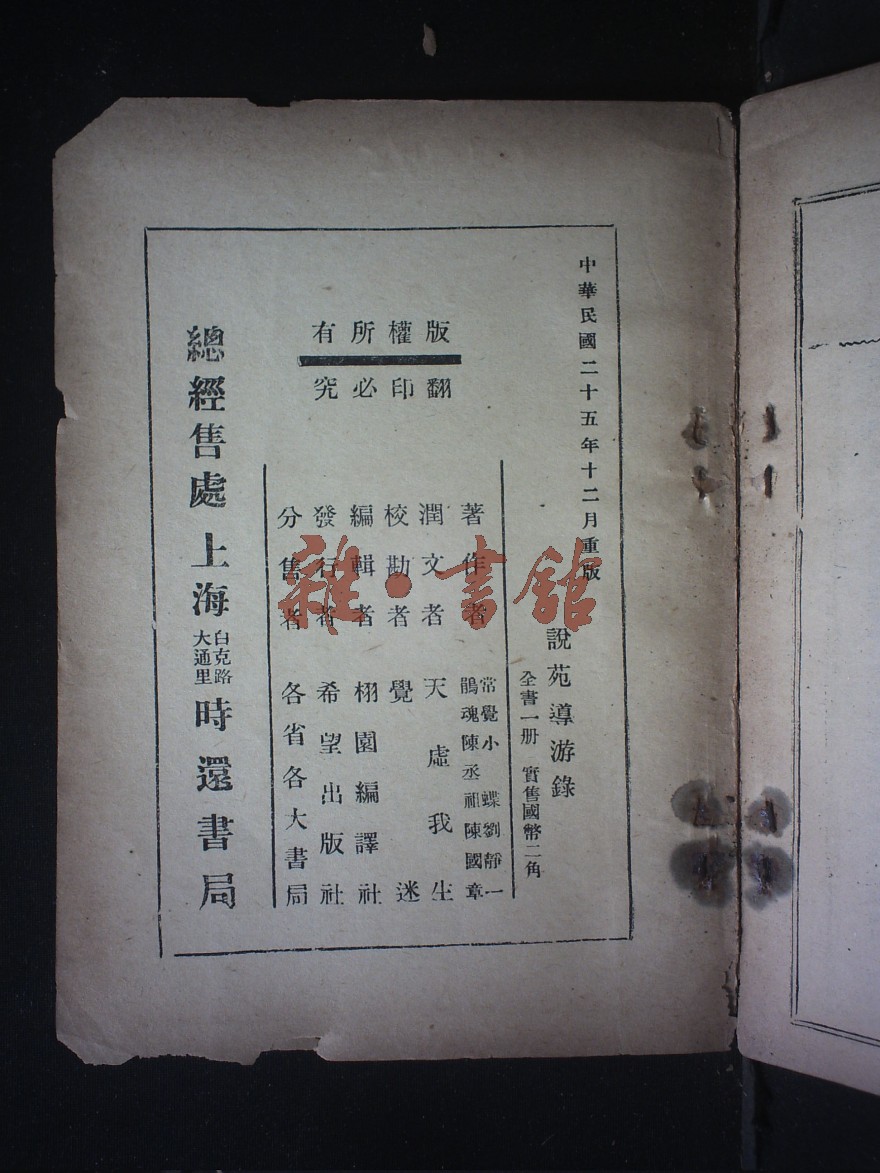 中華民國二十五年十二月重版
說苑導游錄
全書一册 實售國幣二角
著作者 常覺小蝶劉靜一
鵑魂陳丞祖陳國章
潤文者 天虛我生
校勘者 覺迷
編輯者 栩園編譯社
發行者 希望出版社
分售者 各省各大書局
版權所有
翻印必究
總經售處 上海 白克路
大通里 時還書局
雜·書舘